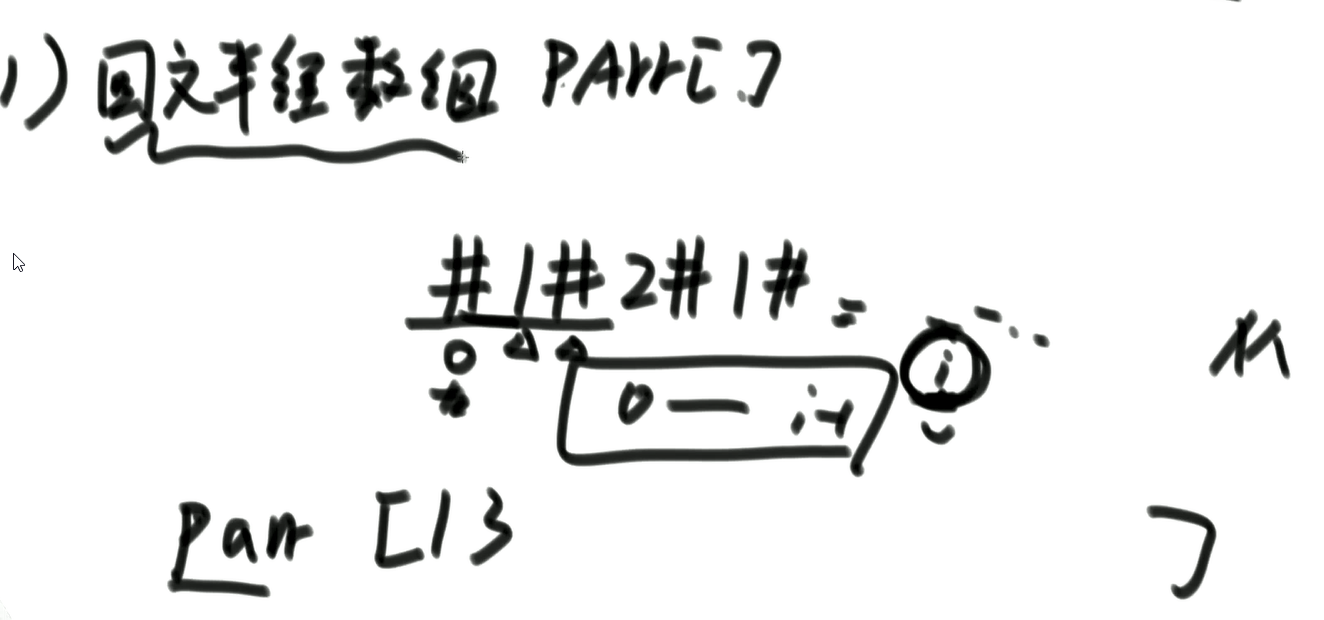 1) 回文半径数组 PArr[]
#1#2#1# = i ...
0 — i-1
Parr [13 ]